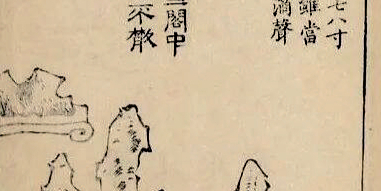 七八寸
雖當
滴聲
閣中
不散